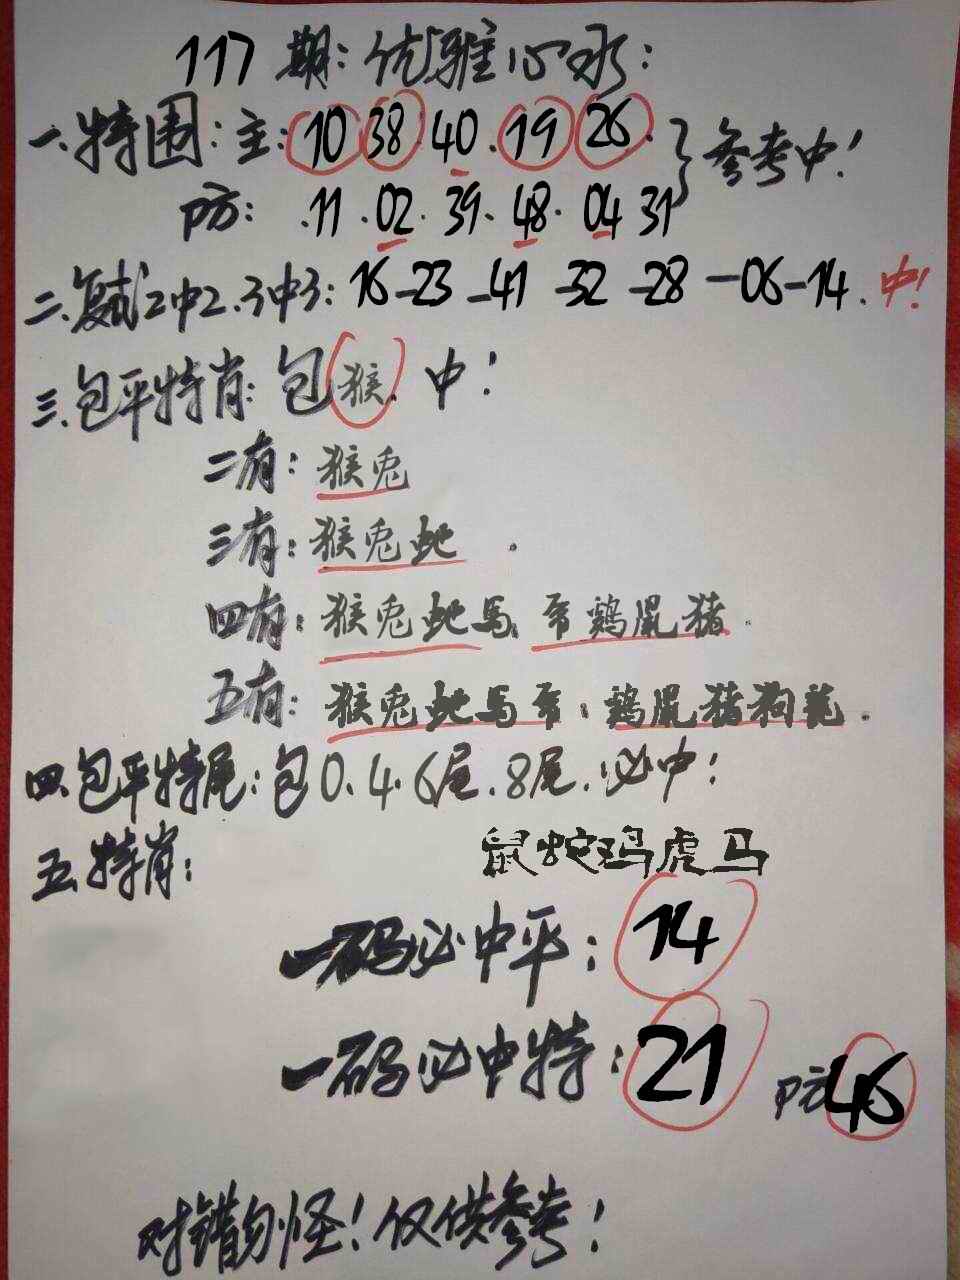 117期:优雅心水:
一.特围:主:10 38 40.19 26.}参考中!
防:.11.02.39.48.04 31
二.复式2中2.3中3:16-23-41-32-28-06-14.中!
三.包平特肖:包猴.中!
二有:猴兔
三有:猴兔蛇.
四有:猴兔蛇马.羊鸡鼠猪.
五有:猴兔蛇马羊.鸡鼠猪狗龙.
四.包平特尾:包0.4.6尾.8尾.必中!
五.特肖:鼠蛇鸡虎马
一码必中平:14
一码必中特:21 防46
对错勿怪!仅供参考!